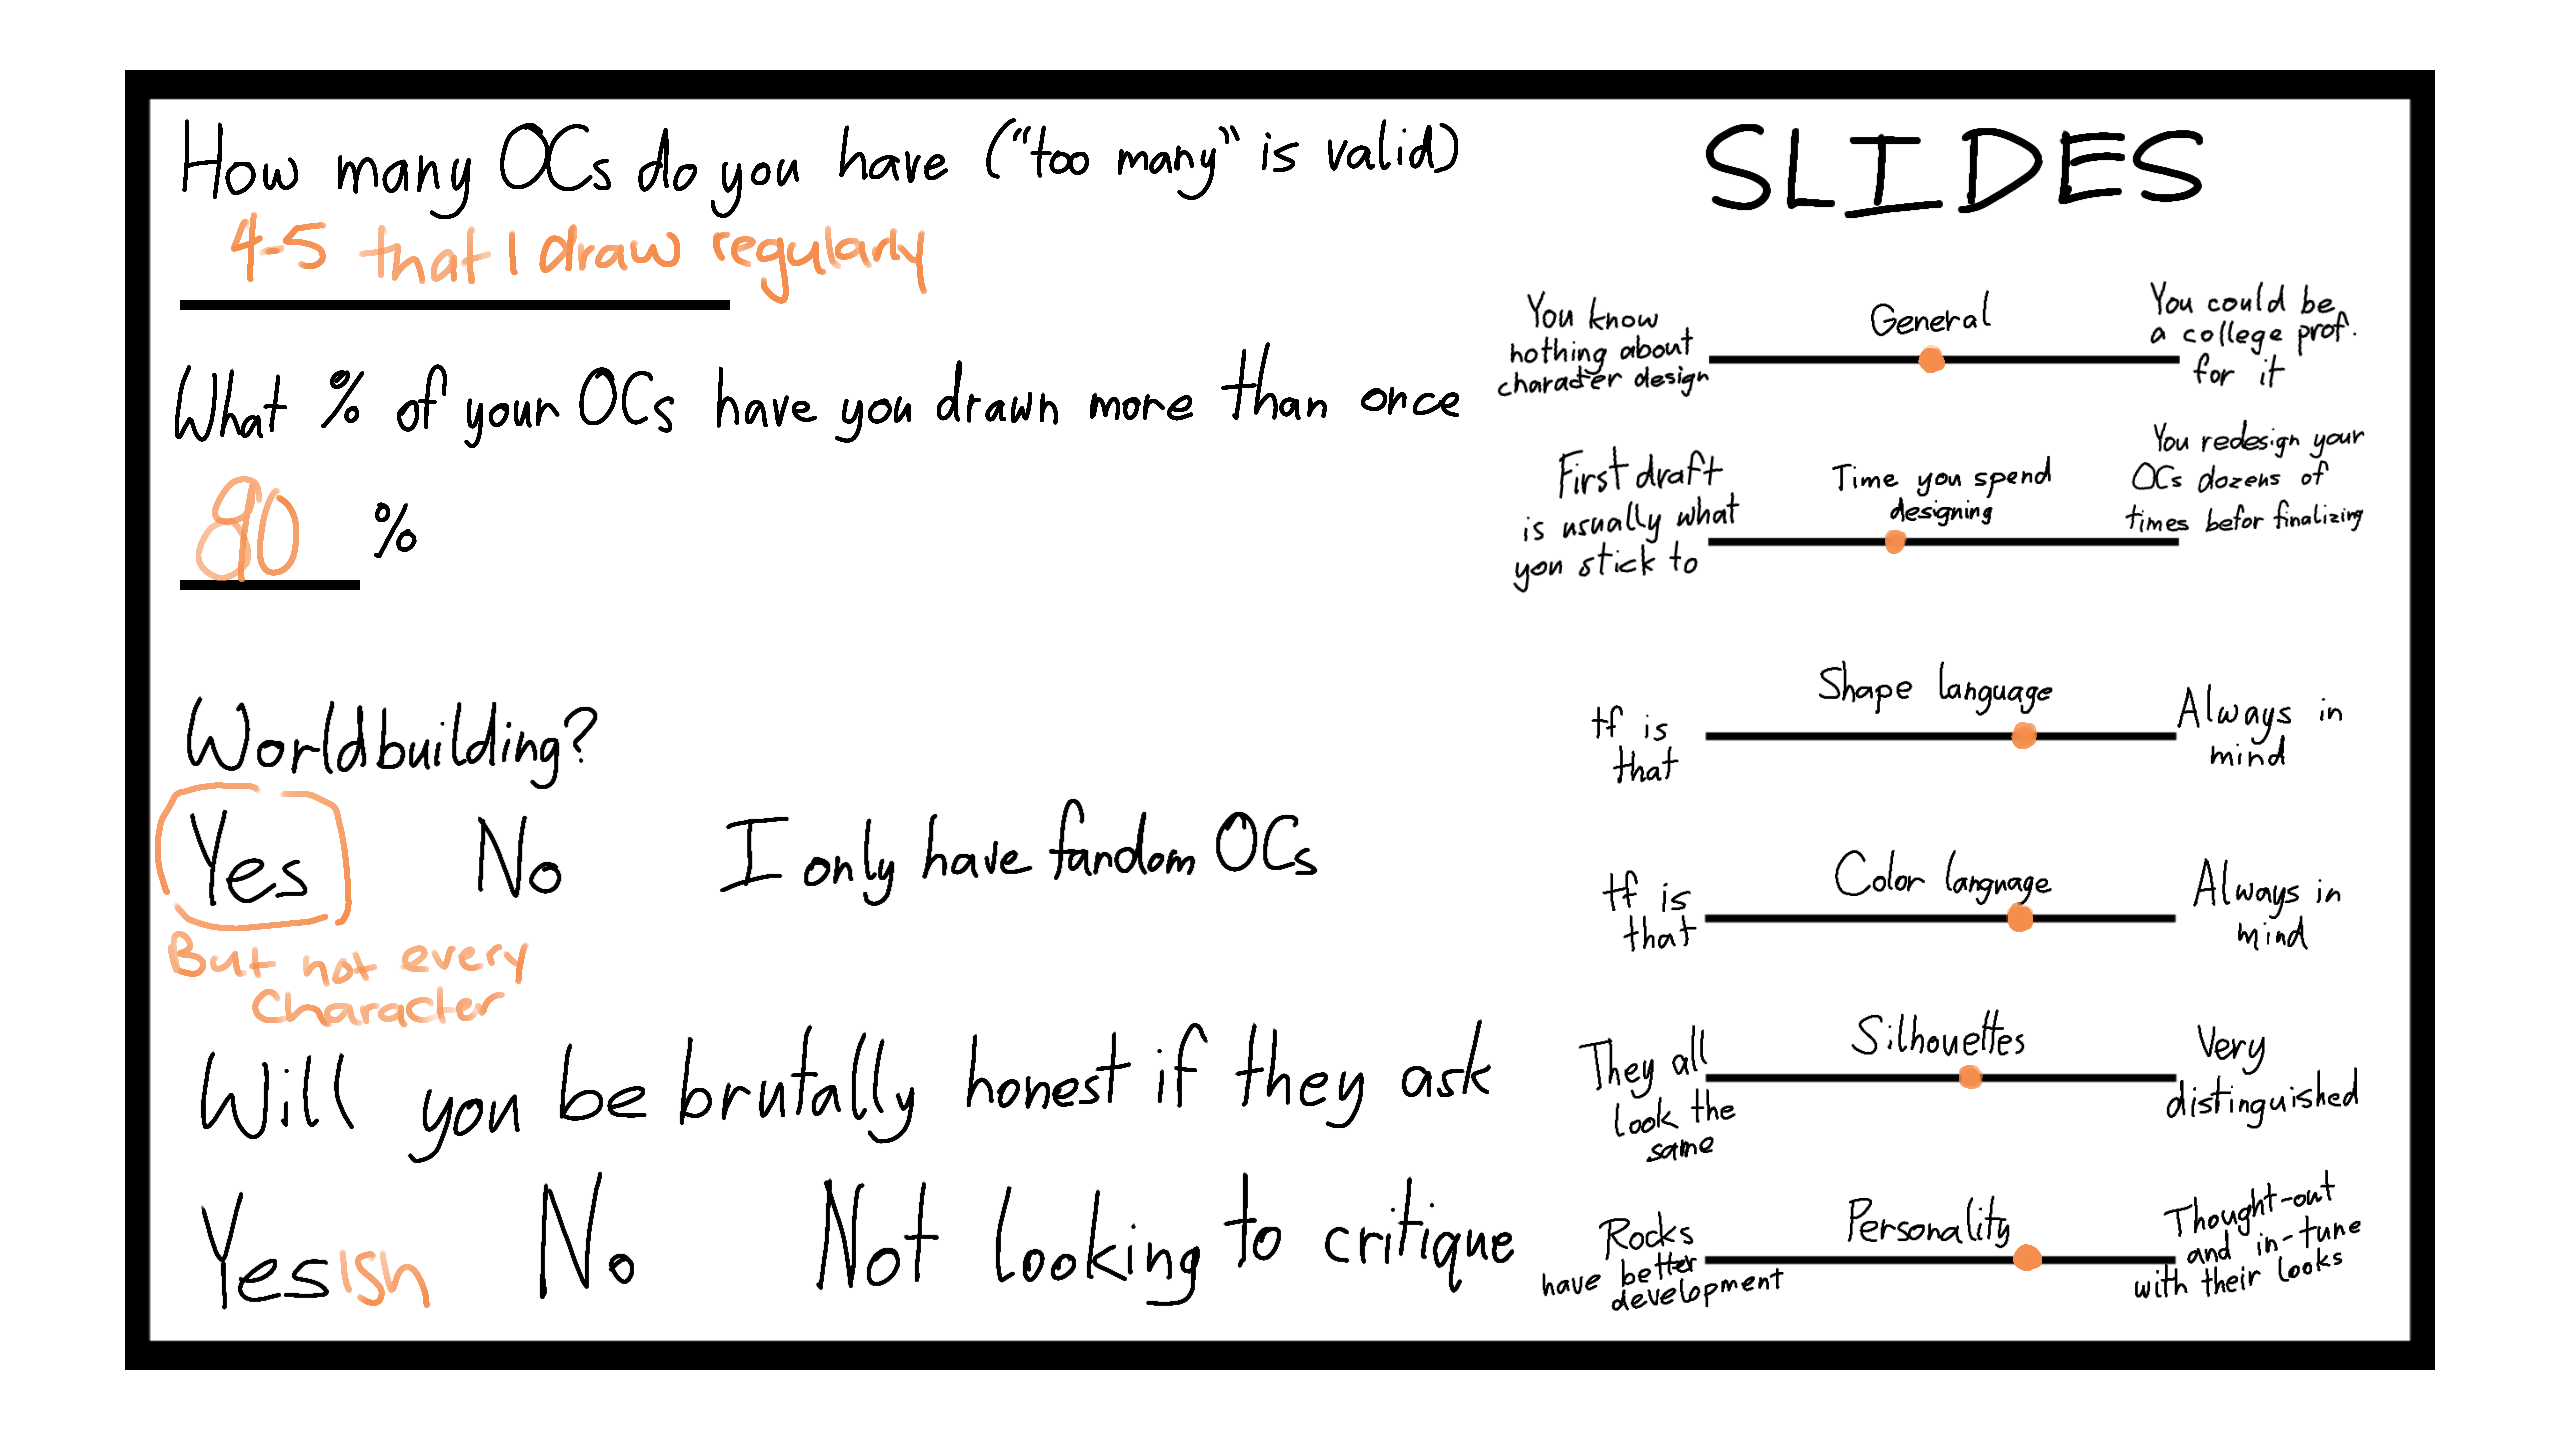 How many OCs do you have ("too many" is valid)
4-5 that I draw regularly
What % of your OCs have you drawn more than once
%
Worldbuilding?
Yes No I only have fandom OCs
But not every
Character
Will you be brutally honest if they ask
Yesish No Not looking to critique
SLIDES
You know
nothing about
character design
General
You could be
a college prof.
for it
First draft
is usually what
you stick to
Time you spend
designing
You redesign your
OCs dozens of
times befor finalizing
tf is
that
Shape language
Always in
mind
tf is
that
Color language
Always in
mind
They all
look the
same
Silhouettes
Very
distinguished
Rocks
have better
development
Personality
Thought-out
and in-tune
with their looks